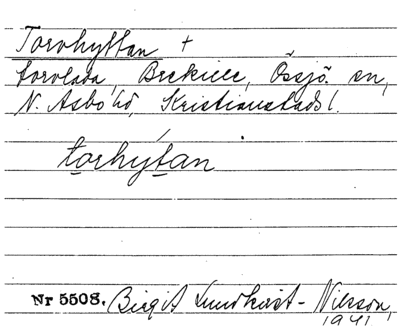 Torvhyttan +
torvlada, Brekille, Össjö sn,
N. Åsbo hd, Kristianstads l.
torhýtan
Nr 5508. Birgit Lundkvist-Nilsson,
1941.